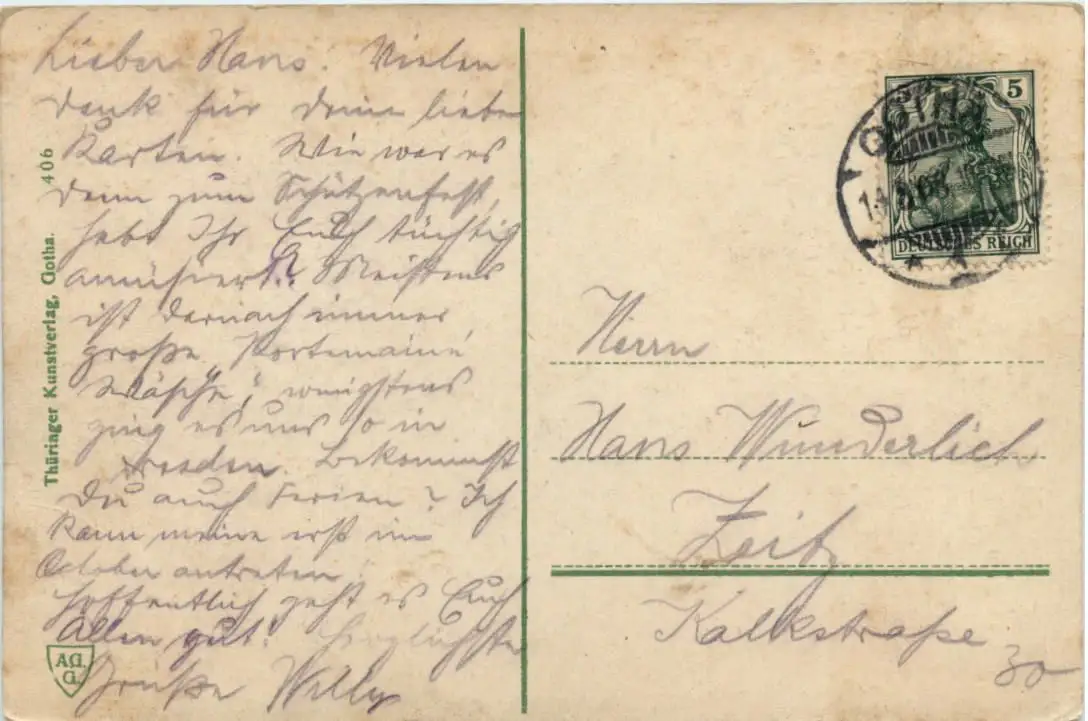 Lieber Hans! Vielen
Dank für Deine lieben
Karten. Wie war es
denn zum Schützenfest,
habt Ihr Euch tüchtig
amüsiert? Meistens
ist darnach immer
große „Portemainé
Wäsche“, wenigstens
ging es uns so in
Dresden. Bekommst
Du auch Ferien? Ich
kann meine erst im
October antreten.
Hoffentlich geht es Euch
Allen gut! Herzlichste
Grüße Willy
Thüringer Kunstverlag, Gotha. 406
AG.
G.
5
GOTHA
DEUTSCHES REICH
Herrn
Hans Wunderlich
Zeitz
Kalkstraße
30